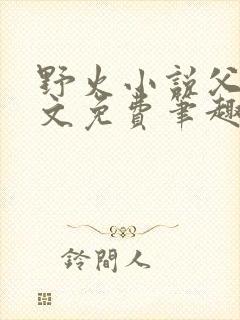 野火小説父
文免費筆趣
鈴間人